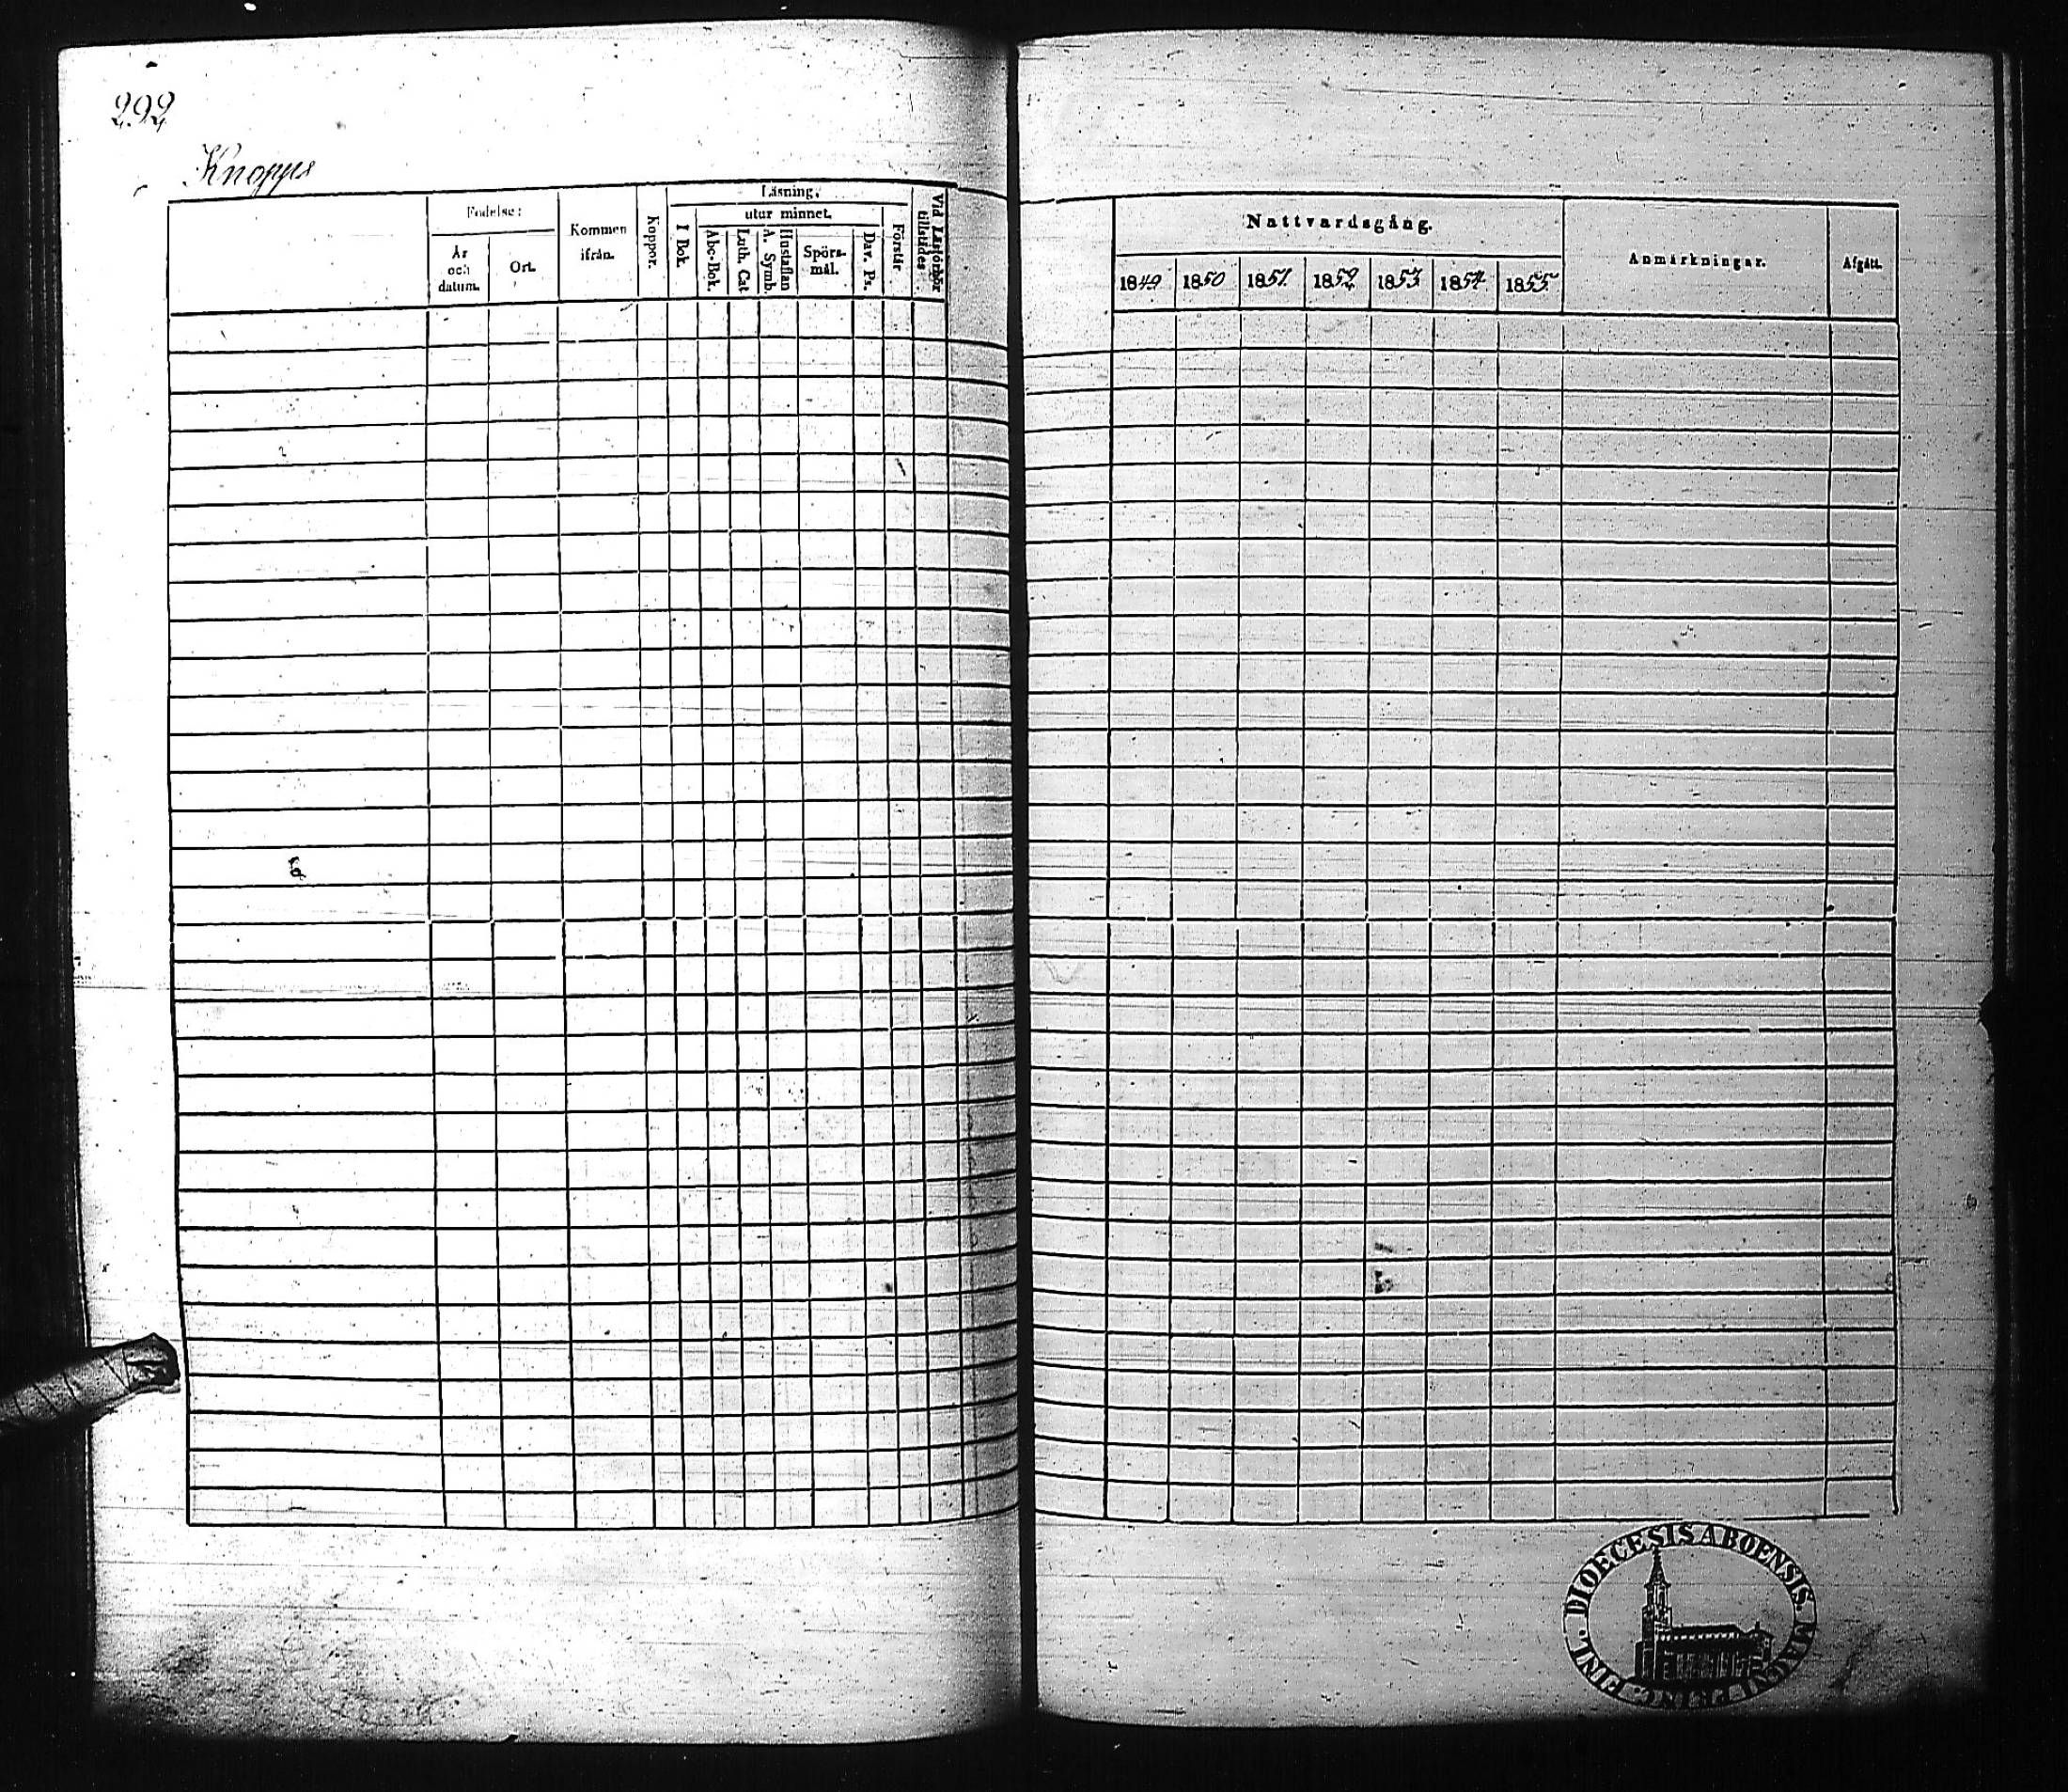 292
Knopps
Födelse:
År och datum.
Ort.
Kommen ifrån.
Koppor.
Läsning.
I Bok.
utur minnet.
Abc-Bok.
Luth. Cat.
A. Symb.
Hustaflan
Spörs-
mål.
Dav. Ps.
Förstår
Vid Läsförhör
tillstädes
Nattvardsgång.
1849 1850 1851 1852 1853 1854 1855
Anmärkningar.
Afgått.
DIOECESIS ABOENSIS. MAGNI PRINC. FINL.